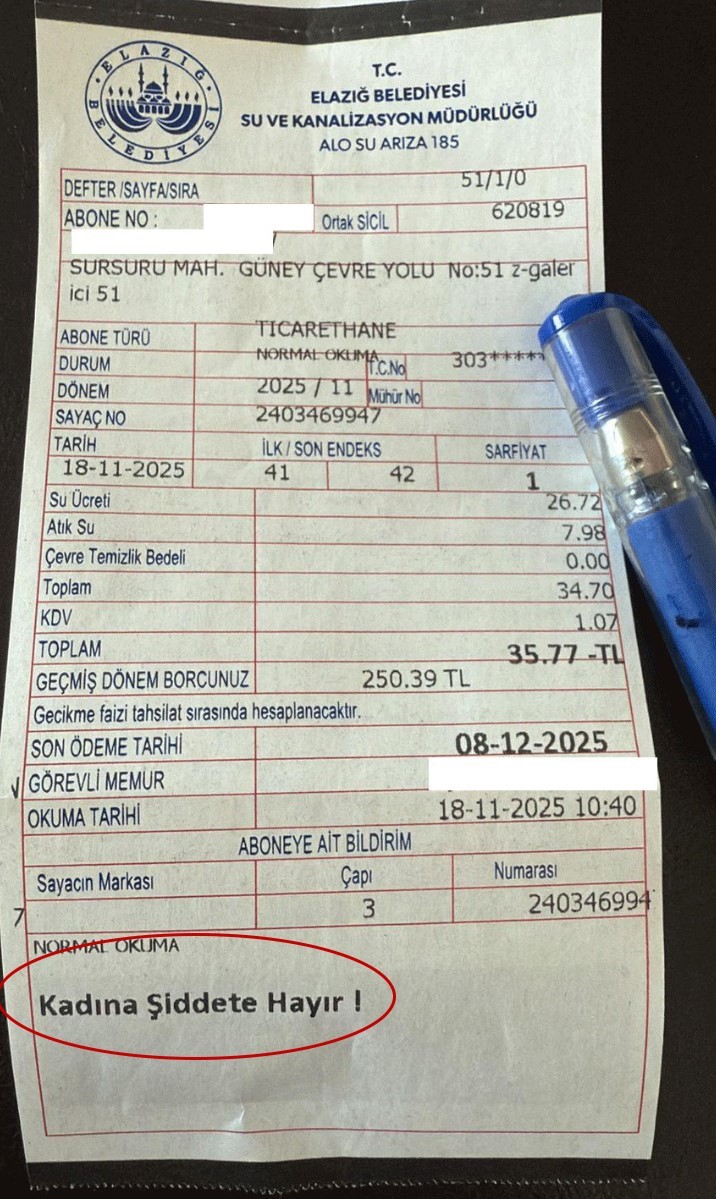 ELAZIĞ
BELEDİYESİ
T.C.
ELAZIĞ BELEDİYESİ
SU VE KANALİZASYON MÜDÜRLÜĞÜ
ALO SU ARIZA 185
DEFTER /SAYFA/SIRA 51/1/0
ABONE NO : Ortak SİCİL 620819
SURSURU MAH. GÜNEY ÇEVRE YOLU No:51 z-galer
ici 51
ABONE TÜRÜ TICARETHANE
DURUM NORMAL OKUMA T.C.No 303*****
DÖNEM 2025 / 11 Mühür No
SAYAÇ NO 2403469947
TARİH İLK / SON ENDEKS SARFİYAT
18-11-2025 41 42 1
Su Ücreti 26.72
Atık Su 7.98
Çevre Temizlik Bedeli 0.00
Toplam 34.70
KDV 1.07
TOPLAM 35.77 -TL
GEÇMİŞ DÖNEM BORCUNUZ 250.39 TL
Gecikme faizi tahsilat sırasında hesaplanacaktır.
SON ÖDEME TARİHİ 08-12-2025
GÖREVLİ MEMUR
OKUMA TARİHİ 18-11-2025 10:40
ABONEYE AİT BİLDİRİM
Sayacın Markası Çapı Numarası
3 240346994
7
NORMAL OKUMA
Kadına Şiddete Hayır !